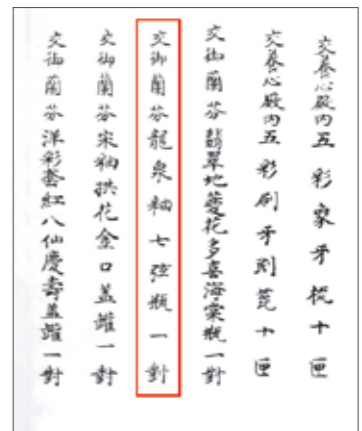 交養心殿内五彩象牙梳十匣
交養心殿内五彩刷牙刮篦十匣
交御蘭芬翡翠地菱花多喜海棠瓶一對
交御蘭芬龍泉釉七弦瓶一對
交御蘭芬宋釉拱花金口盖罐一對
交御蘭芬洋彩套紅八仙慶壽盖罐一對